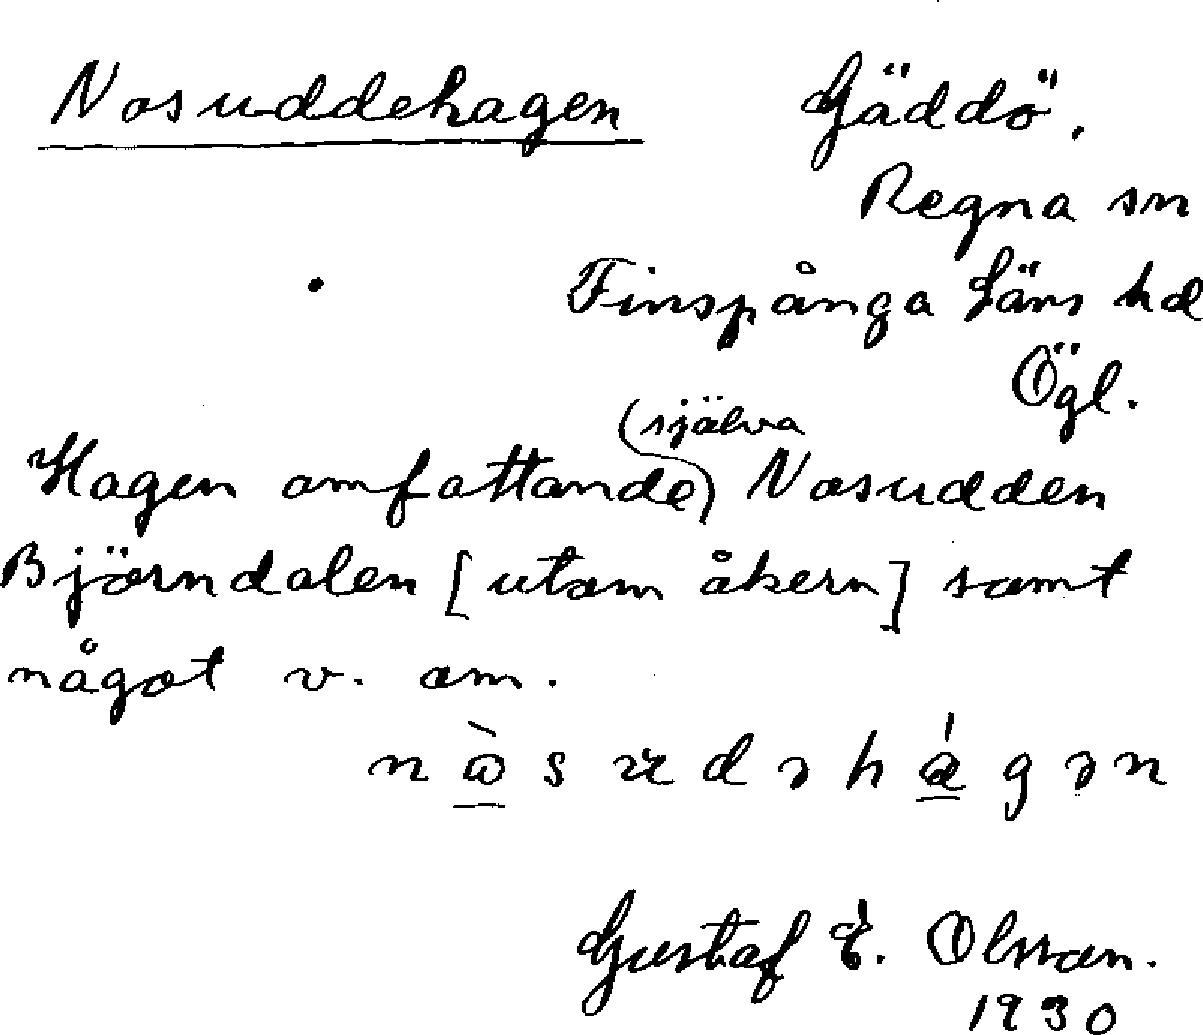 Nosuddehagen Gäddö,
Regna sn
Finspånga läns hd
Ögl.
(själva
Hagen omfattande) Nosudden
Björndalen [utom åkern] samt
något v. om.
Gustaf E. Olsson.
1930